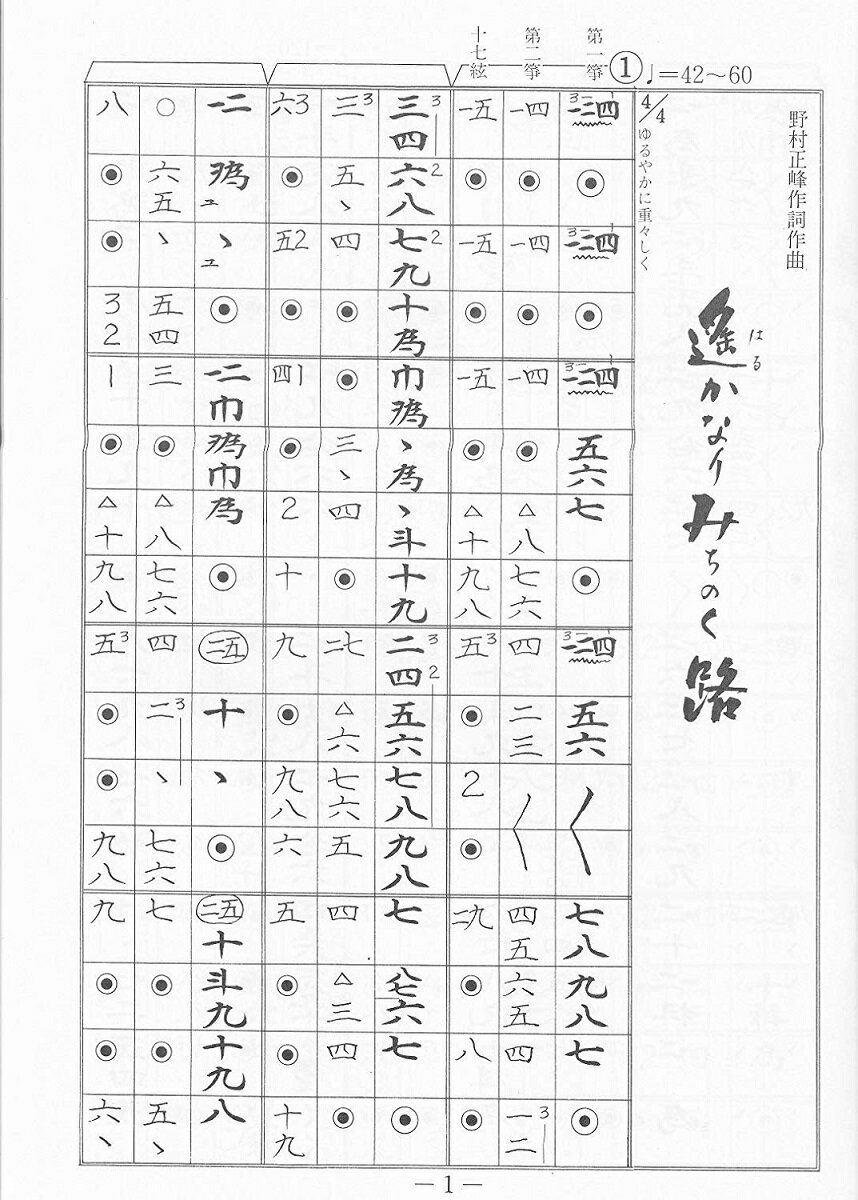 遙かなりみちのく路
はる
野村正峰作詞作曲
① ♩=42～60
4/4
ゆるやかに重々しく
第一箏
第二箏
十七絃
◉ ◉ 五六 七 ◉ 五六 七八 九八 七 ◉
一四 ◉ 一四 ◉ 一四 ◉ △八 七六 四 二三 四五 六五 四 一二3
一五 ◉ 一五 ◉ 一五 ◉ △十 九八 五3 ◉ 2 ◉ 二九 ◉ 八 ◉
三四3 六八2 七九2 十為 巾 ヽ為 ヽ斗 十九 二四3 2 五六 七八 九八 七 八七六 七 ◉
三3 五ヽ 四 ◉ ◉ 三ヽ 四 ◉ 二七 △六 七六 五 四 △三 四 ◉
六3 ◉ 五2 ◉ 四1 ◉ 2 十 九 ◉ 九八 六 五 ◉ ◉ 十九
一二 ュ ヽュ ◉ 一二巾 巾 為 ◉ 二五 十 ヽ ◉ 二五十 斗九 十九 八
○ 六五 ヽ 五四 三 ◉ △八 七六 四 二3 ヽ 七六 七 ◉ ◉ 五ヽ
八 ◉ ◉ 32 1 ◉ △十 九八 五3 ◉ ◉ 九八 九 ◉ ◉ 六ヽ
—1—